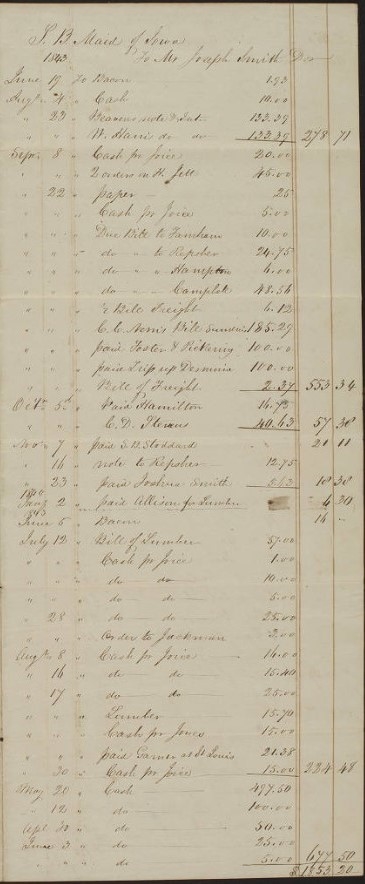 S. B Maid of Iowa
1843. To Mr Joseph Smith Dr
June 19 To Bacon 1.93
Augt 4 " Cash 10.00
" 23 " note & Int 133.39
" " " W. Harris do do 133.39 278 71
Sept 8 " Cash pr Joice 20.00
" " " 2 orders on H. 45.00
" 22 " paper 25
" " " Cash pr Joice 5.00
" " " Due Bill to Farnham 10.00
" " " do " to Repsher 24.75
" " " do " " Hampton 6.00
" " " do " " 48.56
" " " Bill Freight 6.12
" " " Bill Sundries 185.29
" " " paid Foster & Pickering 100.00
" " " paid Trip up Desmoin 100.00
" " " Bill of Freight 2.37 553 34
Oct 5 " Paid Hamilton 16.75
" " " C. D. 40.63 57 38
Nov 7 " paid S. D. Stoddard 21 11
" 16 " note to Repsher 12.75
" 23 " paid Joshua Smith 18 38
Jany 2 " paid Allison for Lumber 6 30
June 5 " Bacon 16 -
July 12 " Bill of Lumber 57.00
" " " Cash pr Joice 1.00
" " " do do 10.00
" " " do do 5.00
" 28 " do do 25.00
" " " order to Jackman 2.00
Augt 8 " Cash pr Joice 16.00
" 16 " do do 15.40
" 17 " do do 25.00
" " " Lumber 15.70
" " " Cash pr Joice 15.00
" " " paid Garner at St Louis 21.38
" 30 " Cash pr Joice 15.00 224 48
May 20 " Cash 497.50
" 12 " do 100.00
Apl 30 " do 50.00
June 3 " do 25.00
" " " do 5.00 677 50
$1853 20